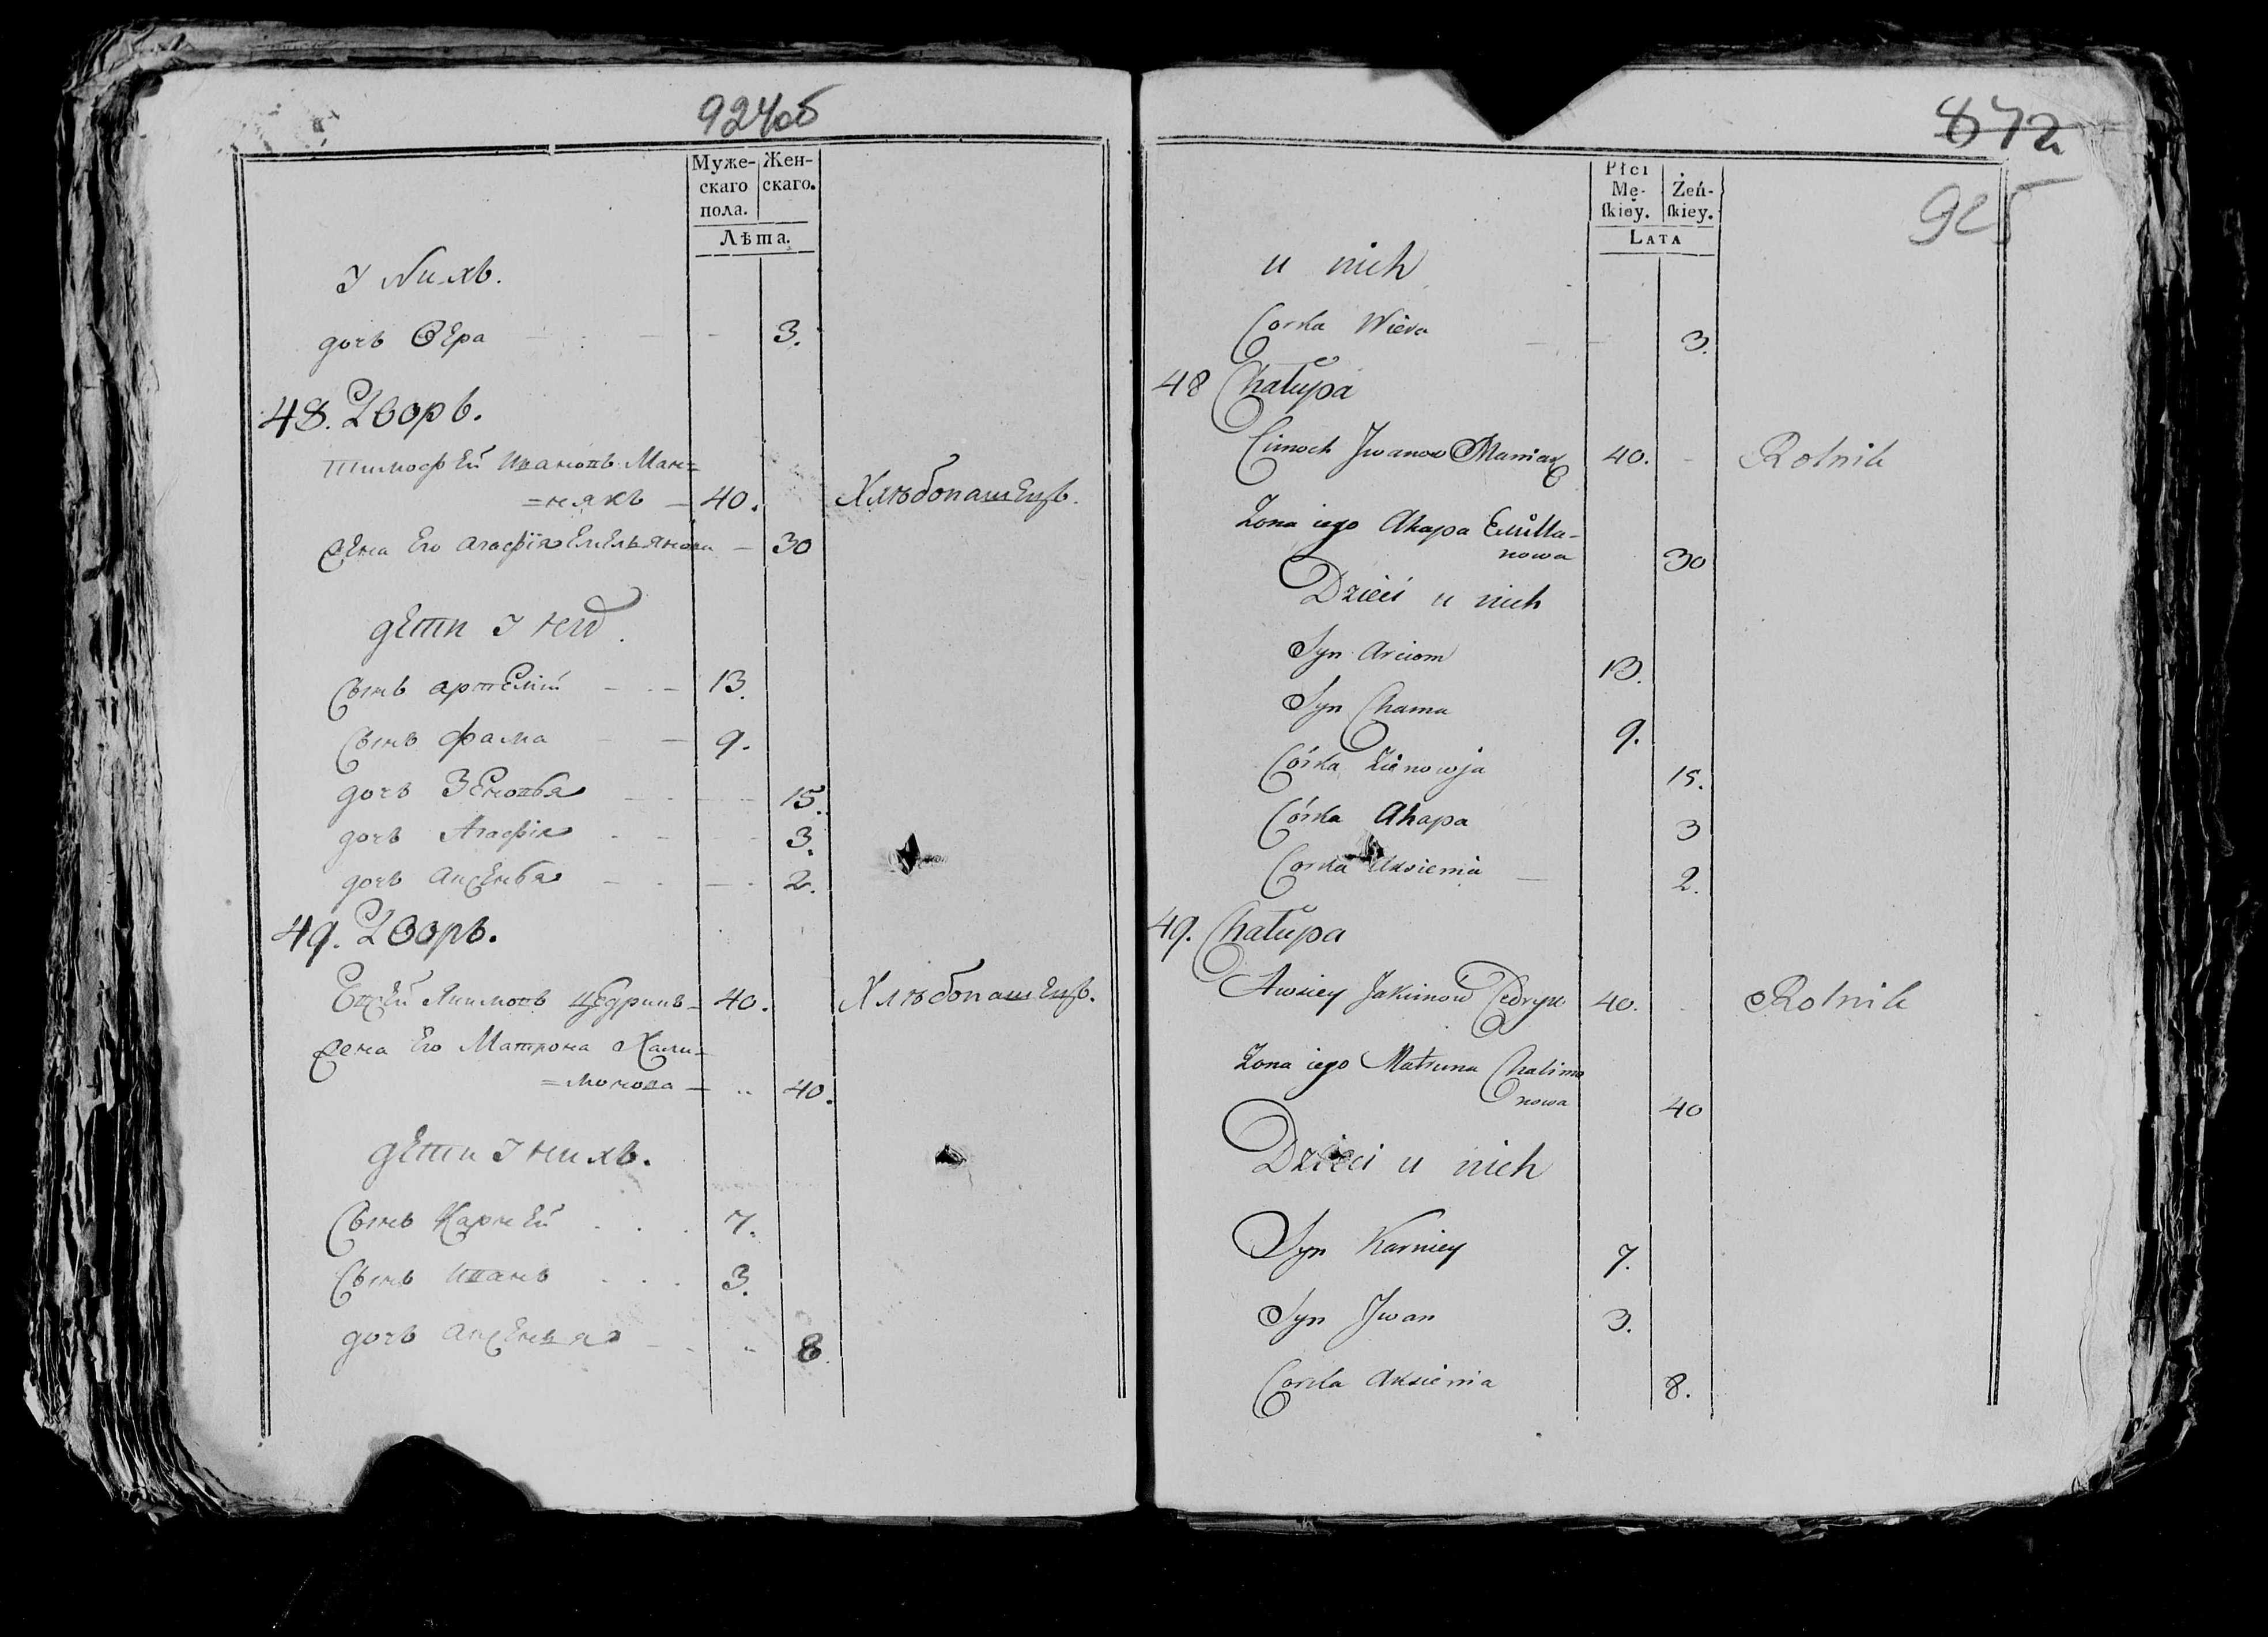 924об
Муже-
скаго
пола.
Жен-
скаго.
Лѣта.
У Нихъ.
дочь Вера 3.
48. Дворъ.
Тимофѣй Ивановъ Ман=
=някъ 40. Хлѣбопашецъ.
Жена Его Агафія Емельянова 30
дети У Нид.
Сынъ Артемій 13.
Сынъ Фама 9.
дочь Зеновья 15.
дочь Агафія 3.
дочь Аксенья 2.
49. Дворъ.
Евсей Якимовъ Щедрикъ 40. Хлѣбопашецъ.
Жена Его Матрона Хали=
=монова 40.
дети У нихъ.
Сынъ Карней 7.
Сынъ Иванъ 3.
дочь Аксенья 8
872
925
Płci
Mę-
skiey.
Żeń-
skiey.
LATA
u nich
Corka Wiera 3.
48 Chałupa
Cimoch Jwanow Maniak 40. Rolnik
Żona iego Ahapa Emilla-
nowa 30
Dzieci u nich
Syn Arciom 13.
Syn Chama 9.
Córka Zienowja 15.
Córka Ahapa 3
Corka Aksienia 2.
49. Chałupa
Awsiey Jakimow Cedryk 40. Rolnik
Żona iego Matruna Chalimo
nowa 40
Dzieci u nich
Syn Karniey 7.
Syn Jwan 3.
Corka Aksienia 8.